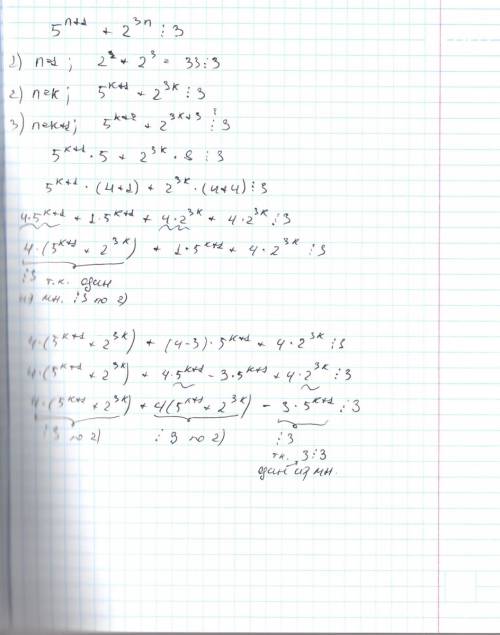 5ⁿ⁺¹ + 2³ⁿ ⋮ 3
1) n=1; 2² + 2³ = 33 ⋮ 3
2) n=k; 5ᵏ⁺¹ + 2³ᵏ ⋮ 3
3) n=k+1; 5ᵏ⁺² + 2³ᵏ⁺³ ⋮ 3
5ᵏ⁺¹ · 5 + 2³ᵏ · 8 ⋮ 3
5ᵏ⁺¹ · (4+1) + 2³ᵏ · (4+4) ⋮ 3
4·5ᵏ⁺¹ + 1·5ᵏ⁺¹ + 4·2³ᵏ + 4·2³ᵏ ⋮ 3
4·(5ᵏ⁺¹ + 2³ᵏ) + 1·5ᵏ⁺¹ + 4·2³ᵏ ⋮ 3
⋮ 3 т.к. один
из мн. ⋮ 3 по 2)
4·(5ᵏ⁺¹ + 2³ᵏ) + (4-3)·5ᵏ⁺¹ + 4·2³ᵏ ⋮ 3
4·(5ᵏ⁺¹ + 2³ᵏ) + 4·5ᵏ⁺¹ - 3·5ᵏ⁺¹ + 4·2³ᵏ ⋮ 3
4·(5ᵏ⁺¹ + 2³ᵏ) + 4(5ᵏ⁺¹ + 2³ᵏ) - 3·5ᵏ⁺¹ ⋮ 3
⋮ 3 по 2) ⋮ 3 по 2) ⋮ 3
т.к. 3 ⋮ 3
один из мн.